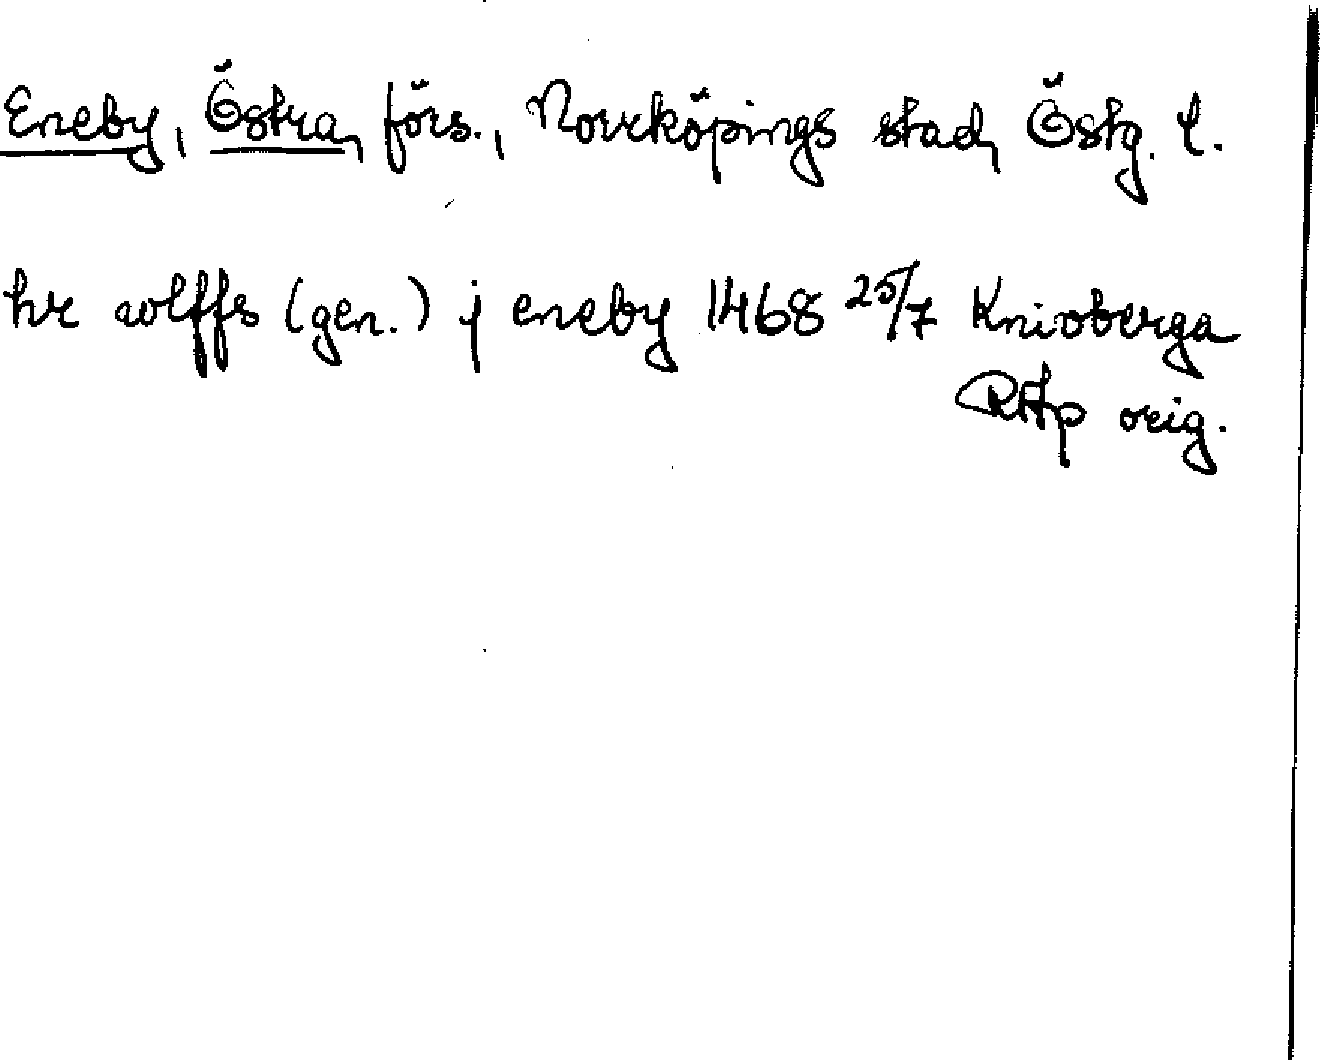 Eneby, Östra, förs., Norrköpings stad, Östg. l.
hr wlffs (gen.) j eneby 1468 25/7 Knivberga
RAp orig.